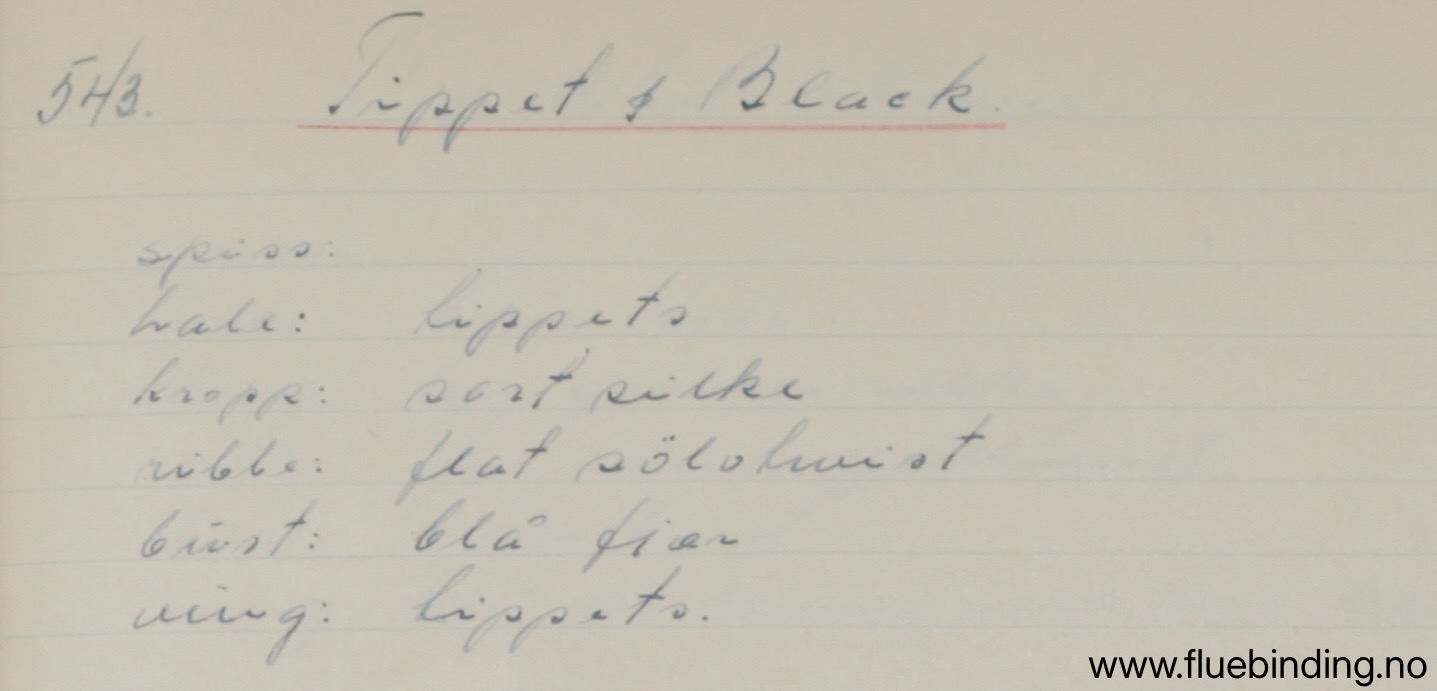 543. Tippet & Black.
spiss:
hale: tippets
kropp: sort silke
ribbe: flat sölvtwist
bust: blå fjær
ving: tippets.
www.fluebinding.no